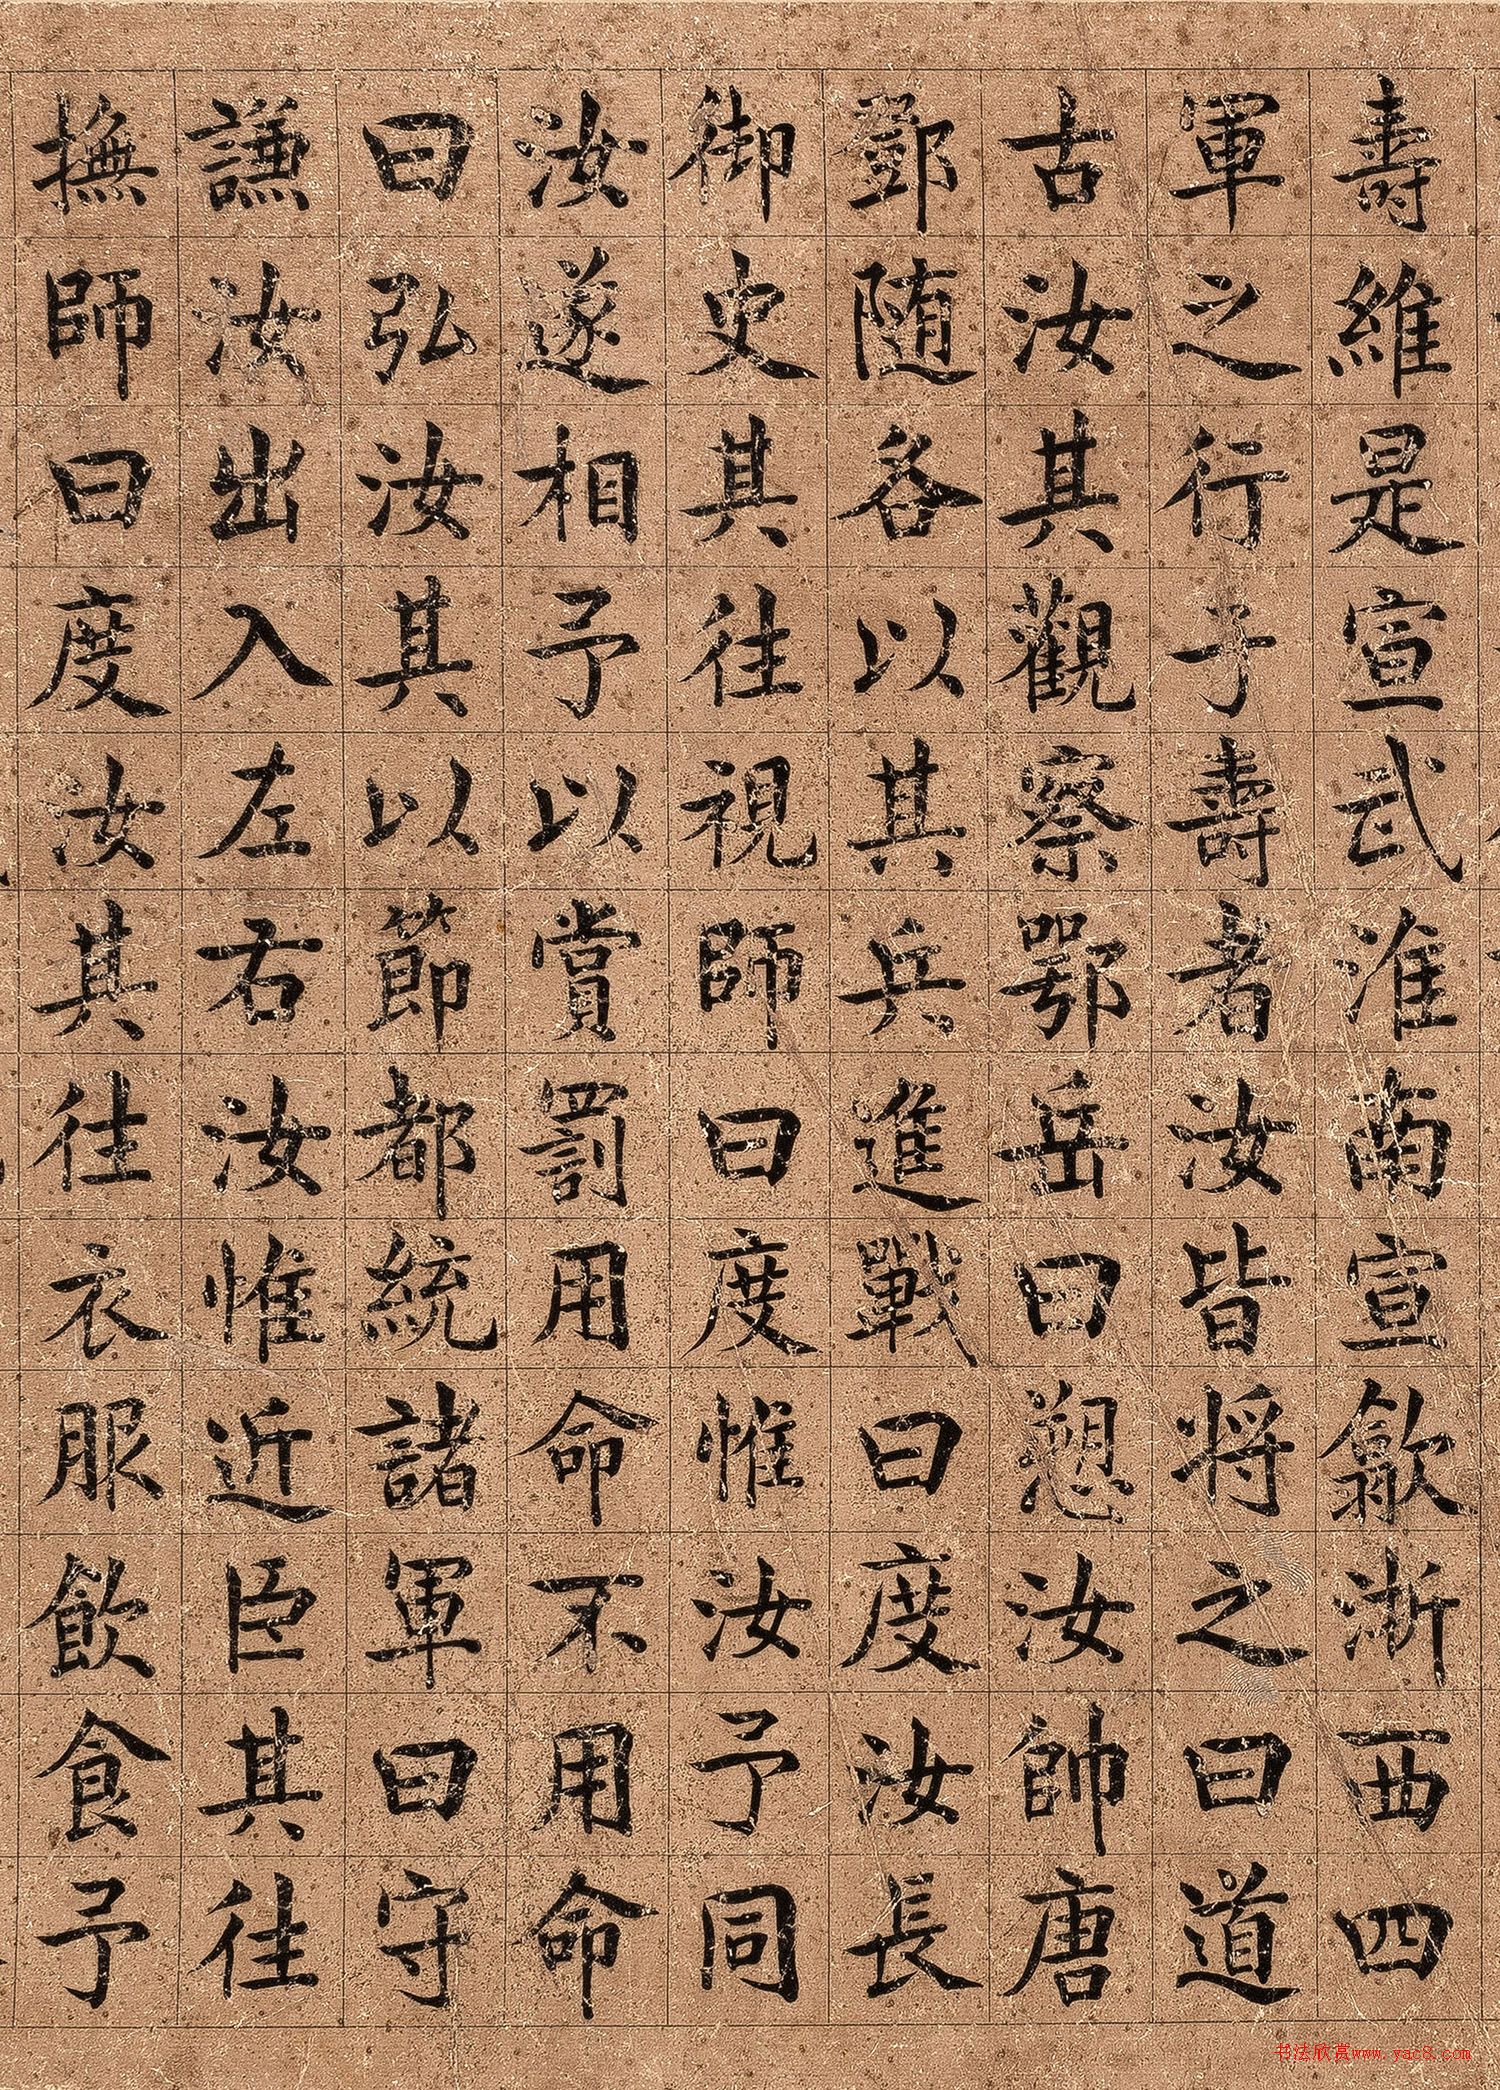 壽維是宣武淮南宣歙浙西四
軍之行于壽者汝皆将之曰道
古汝其觀察鄂岳曰愬汝帥唐
鄧随各以其兵進戰曰度汝長
御史其往視師曰度惟汝予同
汝遂相予以賞罰用命不用命
曰弘汝其以節都統諸軍曰守
謙汝出入左右汝惟近臣其往
撫師曰度汝其往衣服飲食予
书法欣赏www.yac8.com